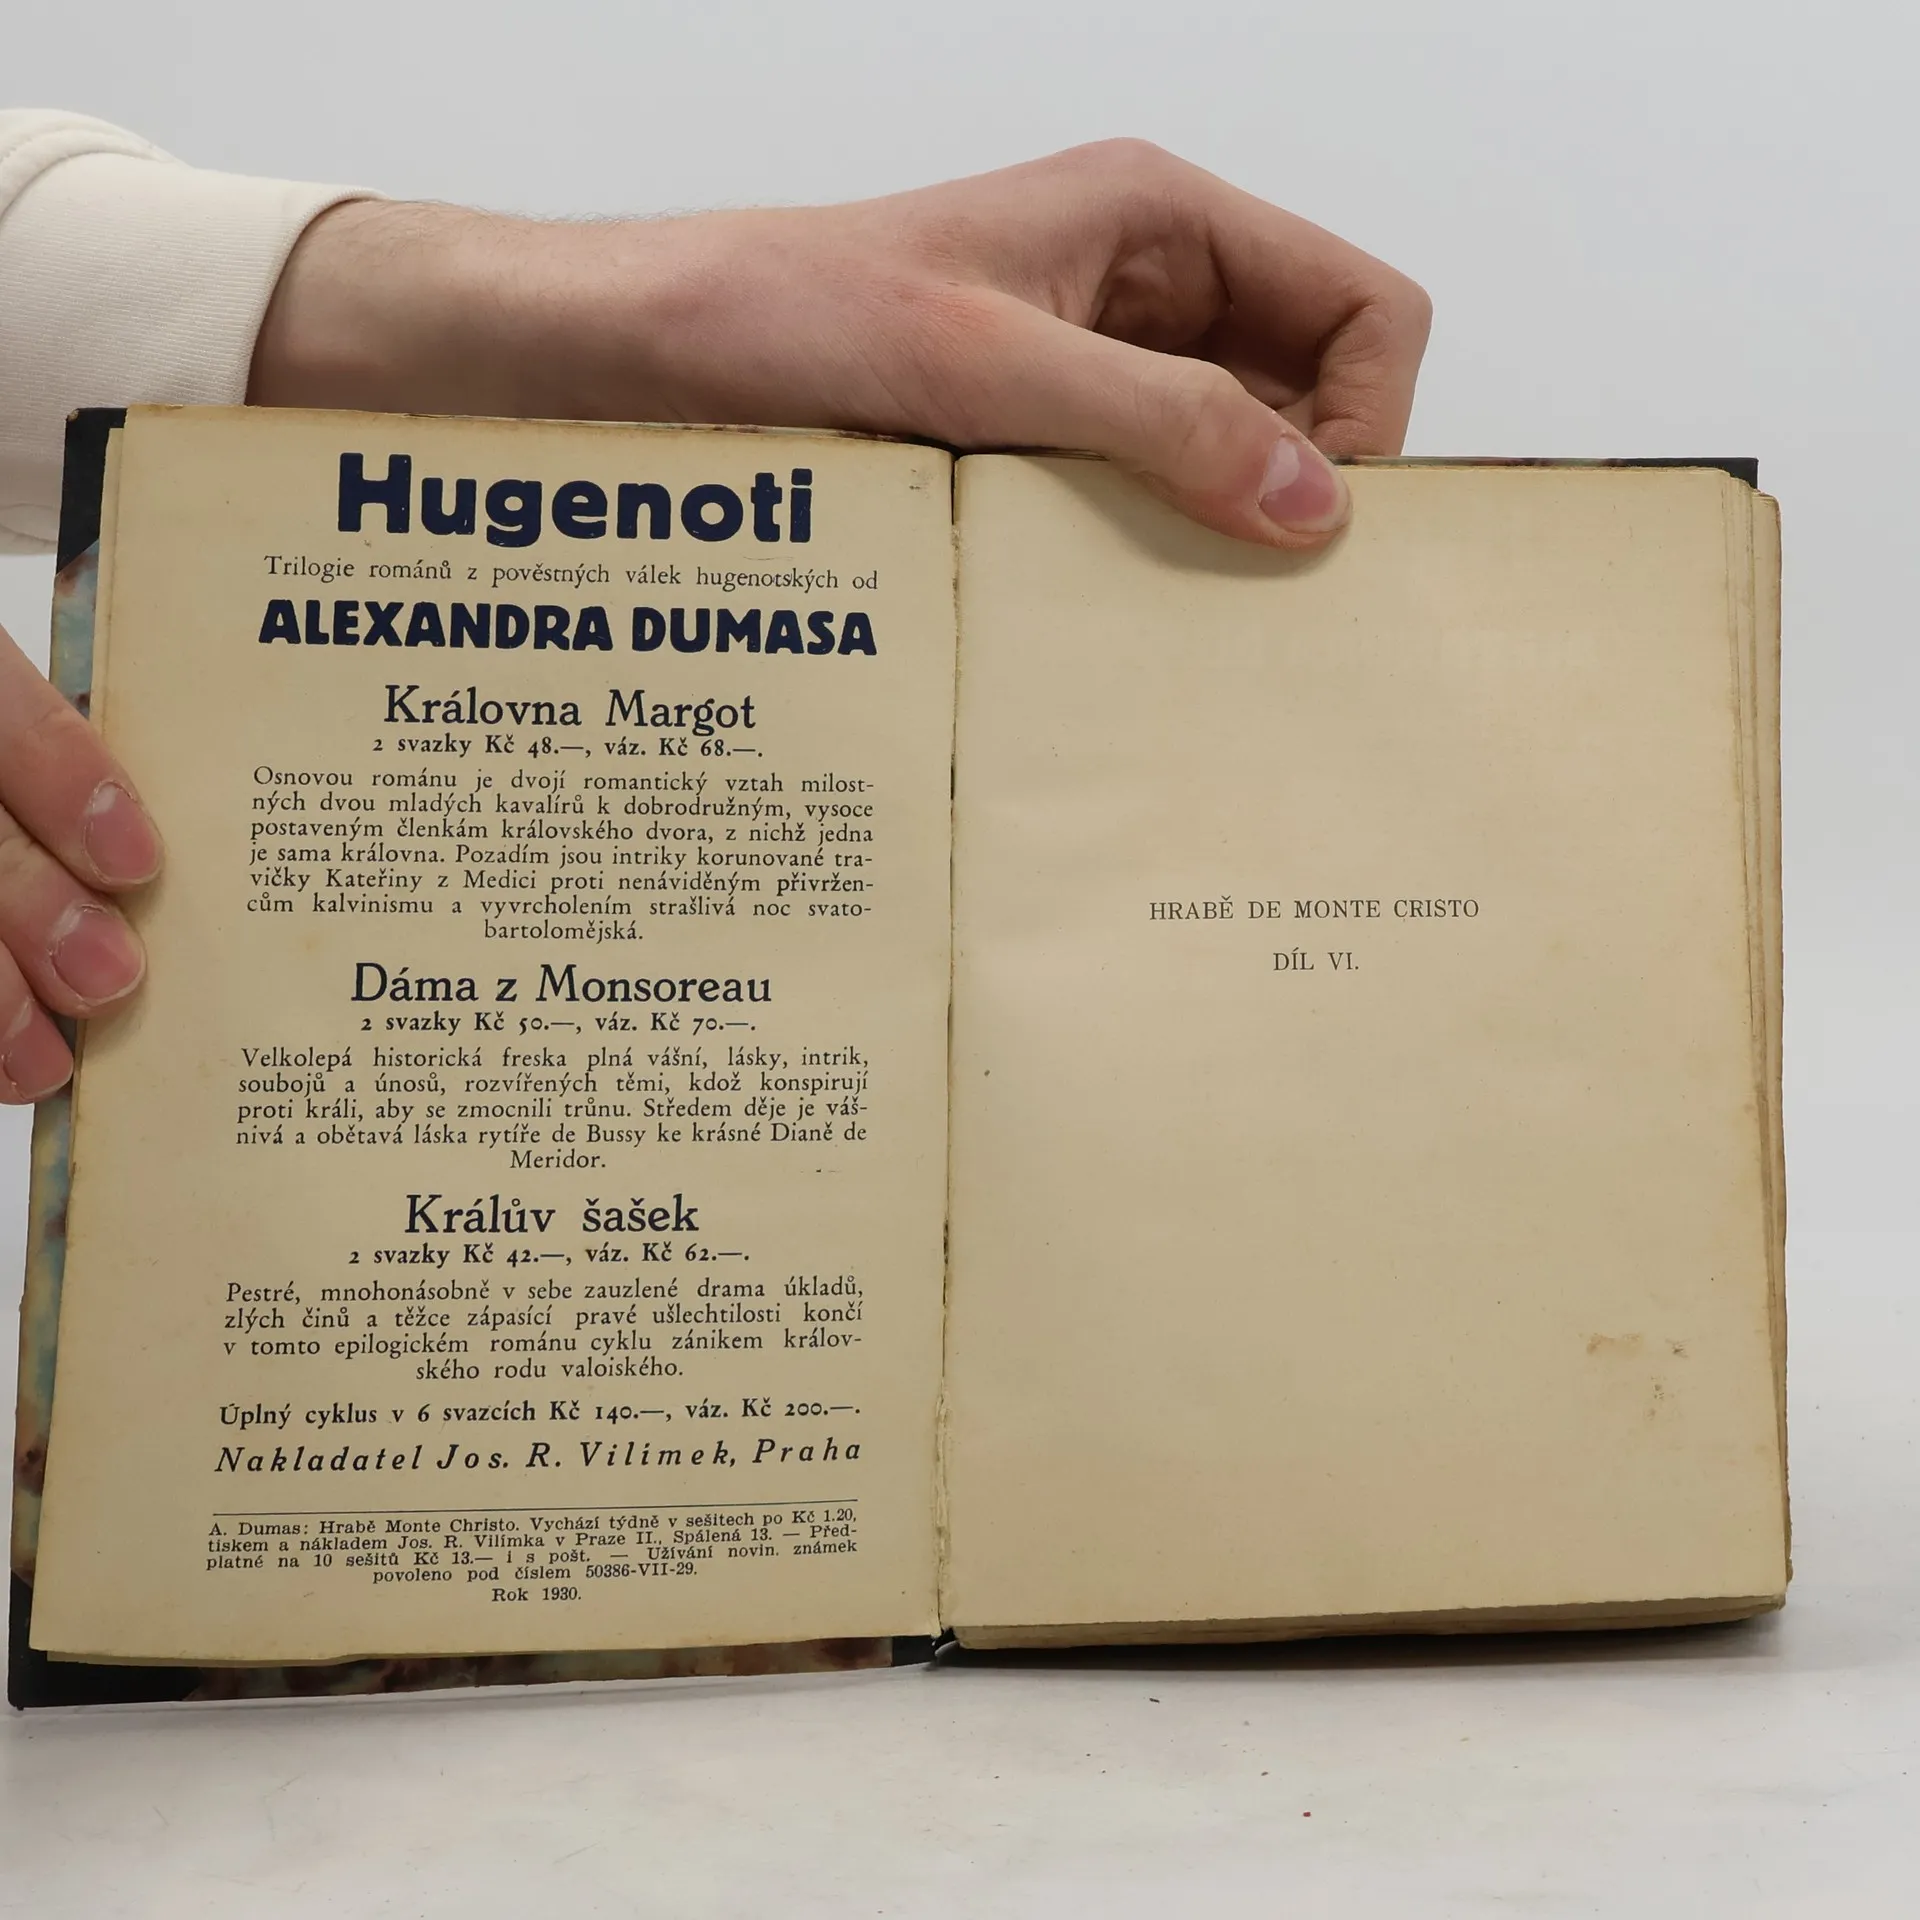 Hugenoti
Trilogie románů z pověstných válek hugenotských od
ALEXANDRA DUMASA
Královna Margot
2 svazky Kč 48.—, váz. Kč 68.—.
Osnovou románu je dvojí romantický vztah milost-
ných dvou mladých kavalírů k dobrodružným, vysoce
postaveným členkám královského dvora, z nichž jedna
je sama královna. Pozadím jsou intriky korunované tra-
vičky Kateřiny z Medici proti nenáviděným přivržen-
cům kalvinismu a vyvrcholením strašlivá noc svato-
bartolomějská.
Dáma z Monsoreau
2 svazky Kč 50.—, váz. Kč 70.—.
Velkolepá historická freska plná vášní, lásky, intrik,
soubojů a únosů, rozvířených těmi, kdož konspirují
proti králi, aby se zmocnili trůnu. Středem děje je váš-
nivá a obětavá láska rytíře de Bussy ke krásné Dianě de
Meridor.
Králův šašek
2 svazky Kč 42.—, váz. Kč 62.—.
Pestré, mnohonásobně v sebe zauzlené drama úkladů,
zlých činů a těžce zápasící pravé ušlechtilosti končí
v tomto epilogickém románu cyklu zánikem králov-
ského rodu valoiského.
Úplný cyklus v 6 svazcích Kč 140.—, váz. Kč 200.—.
Nakladatel Jos. R. Vilímek, Praha
A. Dumas: Hrabě Monte Christo. Vychází týdně v sešitech po Kč 1.20,
tiskem a nákladem Jos. R. Vilímka v Praze II., Spálená 13. — Před-
platné na 10 sešitů Kč 13.— i s pošt. — Užívání novin. známek
povoleno pod číslem 50386-VII-29.
Rok 1930.
HRABĚ DE MONTE CRISTO
DÍL VI.